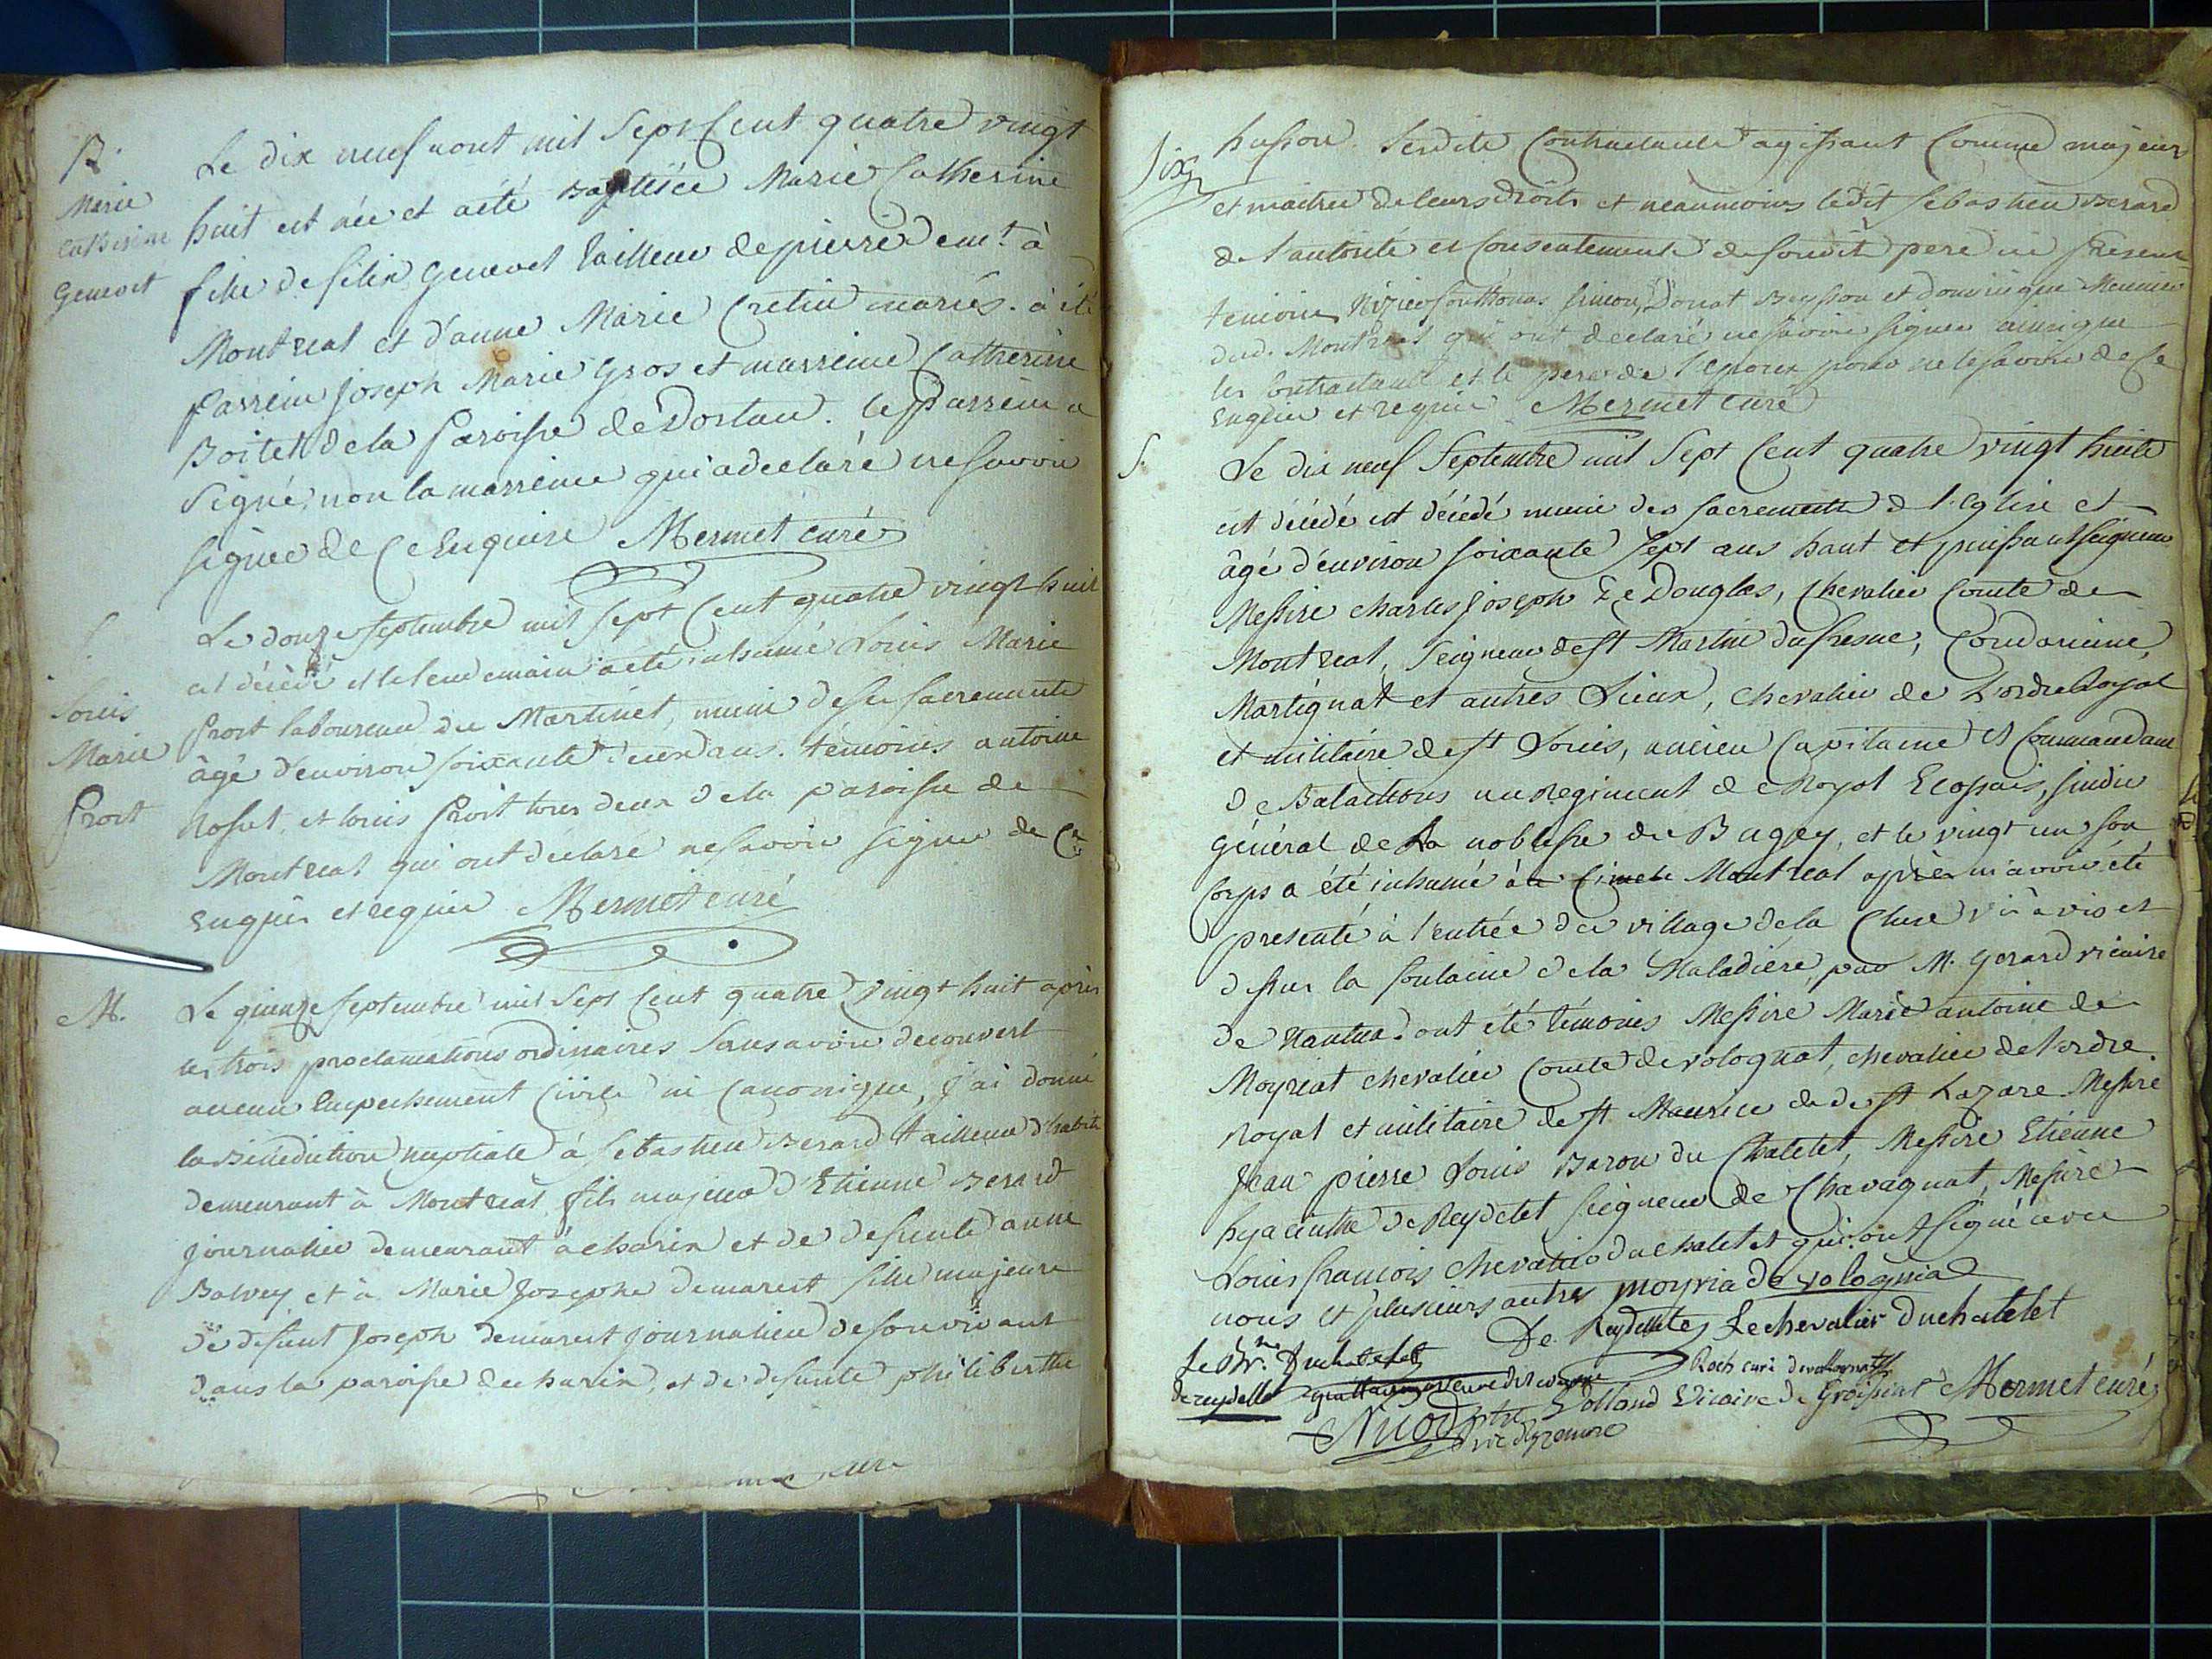 B.
Marie
Catherine
Genevet
Le dix neuf aout mil Sept Cent quatre vingt
huit est née et a été Baptisée Marie Catherine
fille de felix Genevet tailleur de pierre dem.t à
Montreal et d'anne Marie Cretin mariés. à été
parrein Joseph Marie Gros et marreine Catherine
Boitet de la Paroisse de Dortan. le parrein a
Signé, non la marreine qui a declaré ne savoir
signer de Ce Enquise Mermet curé
S.
Louis
Marie
Prost
Le douze septembre mil sept Cent quatre vingt huit
est décédé et le lendemain a été inhumé Louis Marie
Prost laboureur du Martinet, muni de ses sacrements
âgé d'environ soixante deux ans. témoins antoine
et louis Prost tous deux de la paroisse de
Montreal qui ont déclaré ne savoir signer de Ce
Enquis et requis Mermet curé
M.
Le quinze septembre mil Sept Cent quatre vingt huit après
les trois proclamations ordinaires Sans avoir decouvert
aucun Empechement Civile ni Canonique, j'ai donné
la Bénédiction nuptiale à Sebastien Berard tailleur d'habits
demeurant à Montreal fils majeur d'Etienne Berard
journalier demeurant à charix et de defunte anne
Balvey et à Marie Josephe demarest fille majeure
de defunt Joseph demarest journalier de son vivant
dans la paroisse de charix, et de defunte philiberthe
Six
husson. Lesdits Contractants agissant Comme majeurs
et maitres de leurs droits et neanmoins ledit Sebastien Berard
de l'autorité et Consentement de sondit pere ici présent
temoins Simeon, Donat et dominique Meunier
dud. Montreal qui ont declaré ne savoir signer ainsi que
les Contractants et le pere de l'epoux pour ne le savoir de Ce
Enquis et requis Mermet curé
S.
Le dix neuf Septembre mil Sept Cent quatre vingt huite
est décédé est décédé muni des sacrements de l'Eglise et
âgé d'environ soixante sept ans haut et puissant seigneur
Messire charles Joseph De Douglas, Chevalier Comte de
Montreal, Seigneur de St Martin du fresne, Condamine,
Martignat et autres Lieux, chevalier de L'ordre Royal
et militaire de St Louis, ancien Capitaine et Commandant
de Bataillons au Regiment de Royal Ecossais, sindic
général de La noblesse du Bugey, et le vingt un son
Corps a été inhumé à Montreal après m'avoir été
presenté à l'entrée du village de la Cluse vis à vis et
dessus la fontaine de la Maladière, par M. Gerard vicaire
de Nantua. ont été témoins Messire Marie antoine de
Moyriat chevalier Comte de volognat, chevalier de l'ordre
Royal et militaire de St Maurice de St Lazare Messire
Jean pierre Louis Baron du Chatelet, Messire Etienne
hyacinthe de Reydelet seigneur de Chavagnat, Messire
Louis françois Chevalier du chatelet qui ont signé avec
nous et plusieurs autres moyria de volognia
De Reydellet Le chevalier duchatelet
Le Bn. Duchatelet
Roch curé de
de reydellet
Vicaire de Groissiat Mermet curé
Nicod ptre